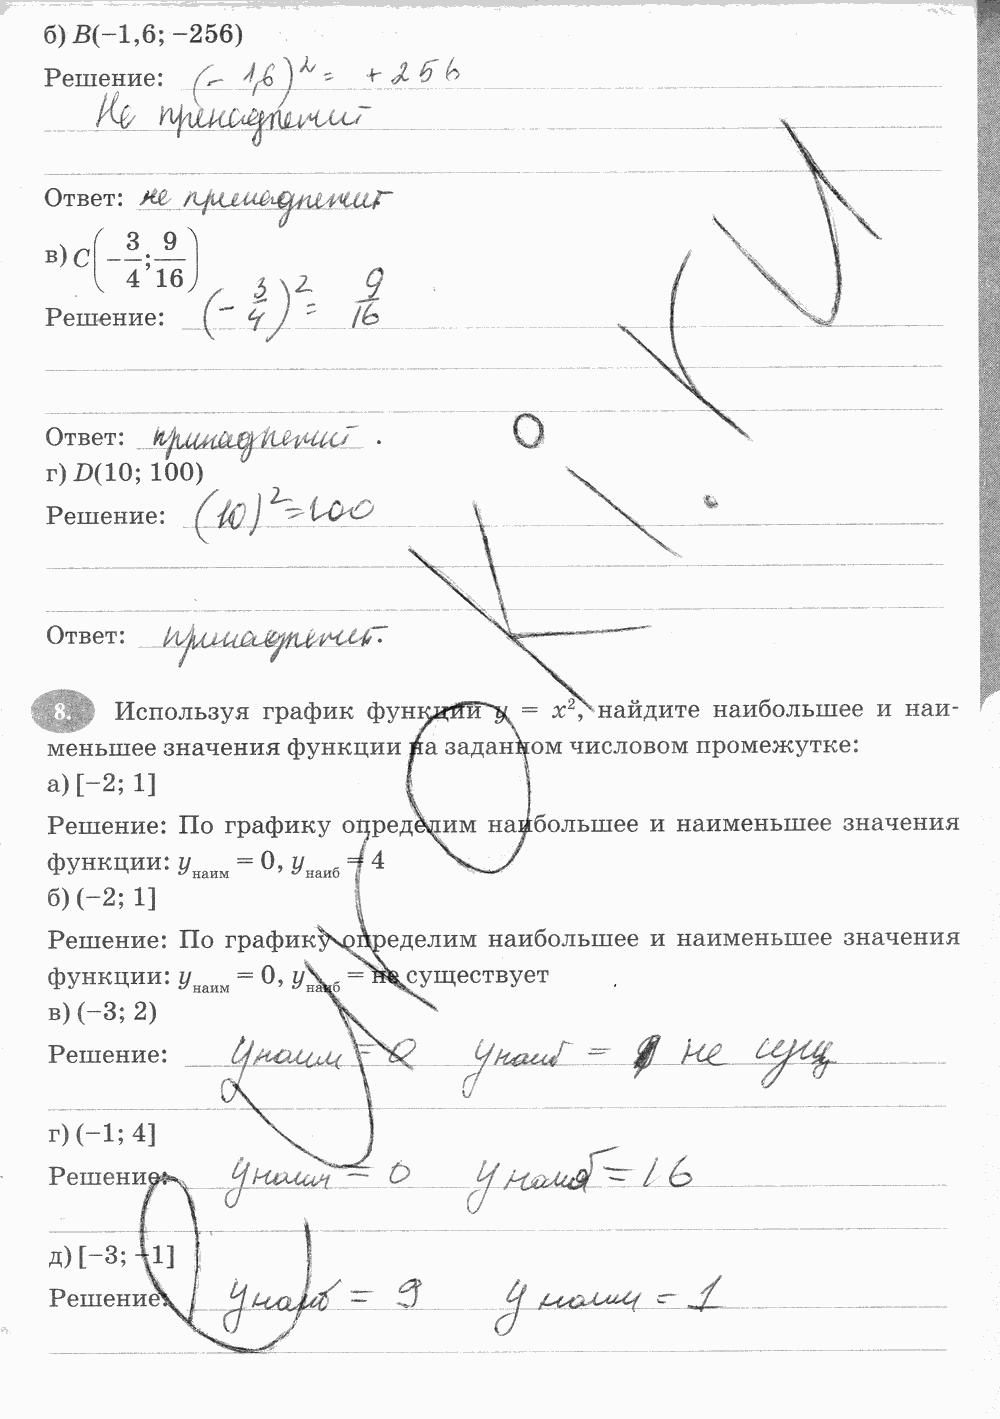 б) B(−1,6; −256)
Решение: (− 1,6)² = + 256
Не принадлежит
Ответ: не принадлежит
в) C(−3/4; 9/16)
Решение: (− 3/4)² = 9/16
Ответ: принадлежит .
г) D(10; 100)
Решение: (10)² = 100
Ответ: принадлежит.
8. Используя график функции y = x², найдите наибольшее и наи-
меньшее значения функции на заданном числовом промежутке:
а) [−2; 1]
Решение: По графику определим наибольшее и наименьшее значения
функции: yнаим = 0, yнаиб = 4
б) (−2; 1]
Решение: По графику определим наибольшее и наименьшее значения
функции: yнаим = 0, yнаиб = не существует
в) (−3; 2)
Решение: yнаим = 0 yнаиб = не сущ
г) (−1; 4]
Решение: yнаим = 0 yнаиб = 16
д) [−3; −1]
Решение: yнаиб = 9 yнаим = 1